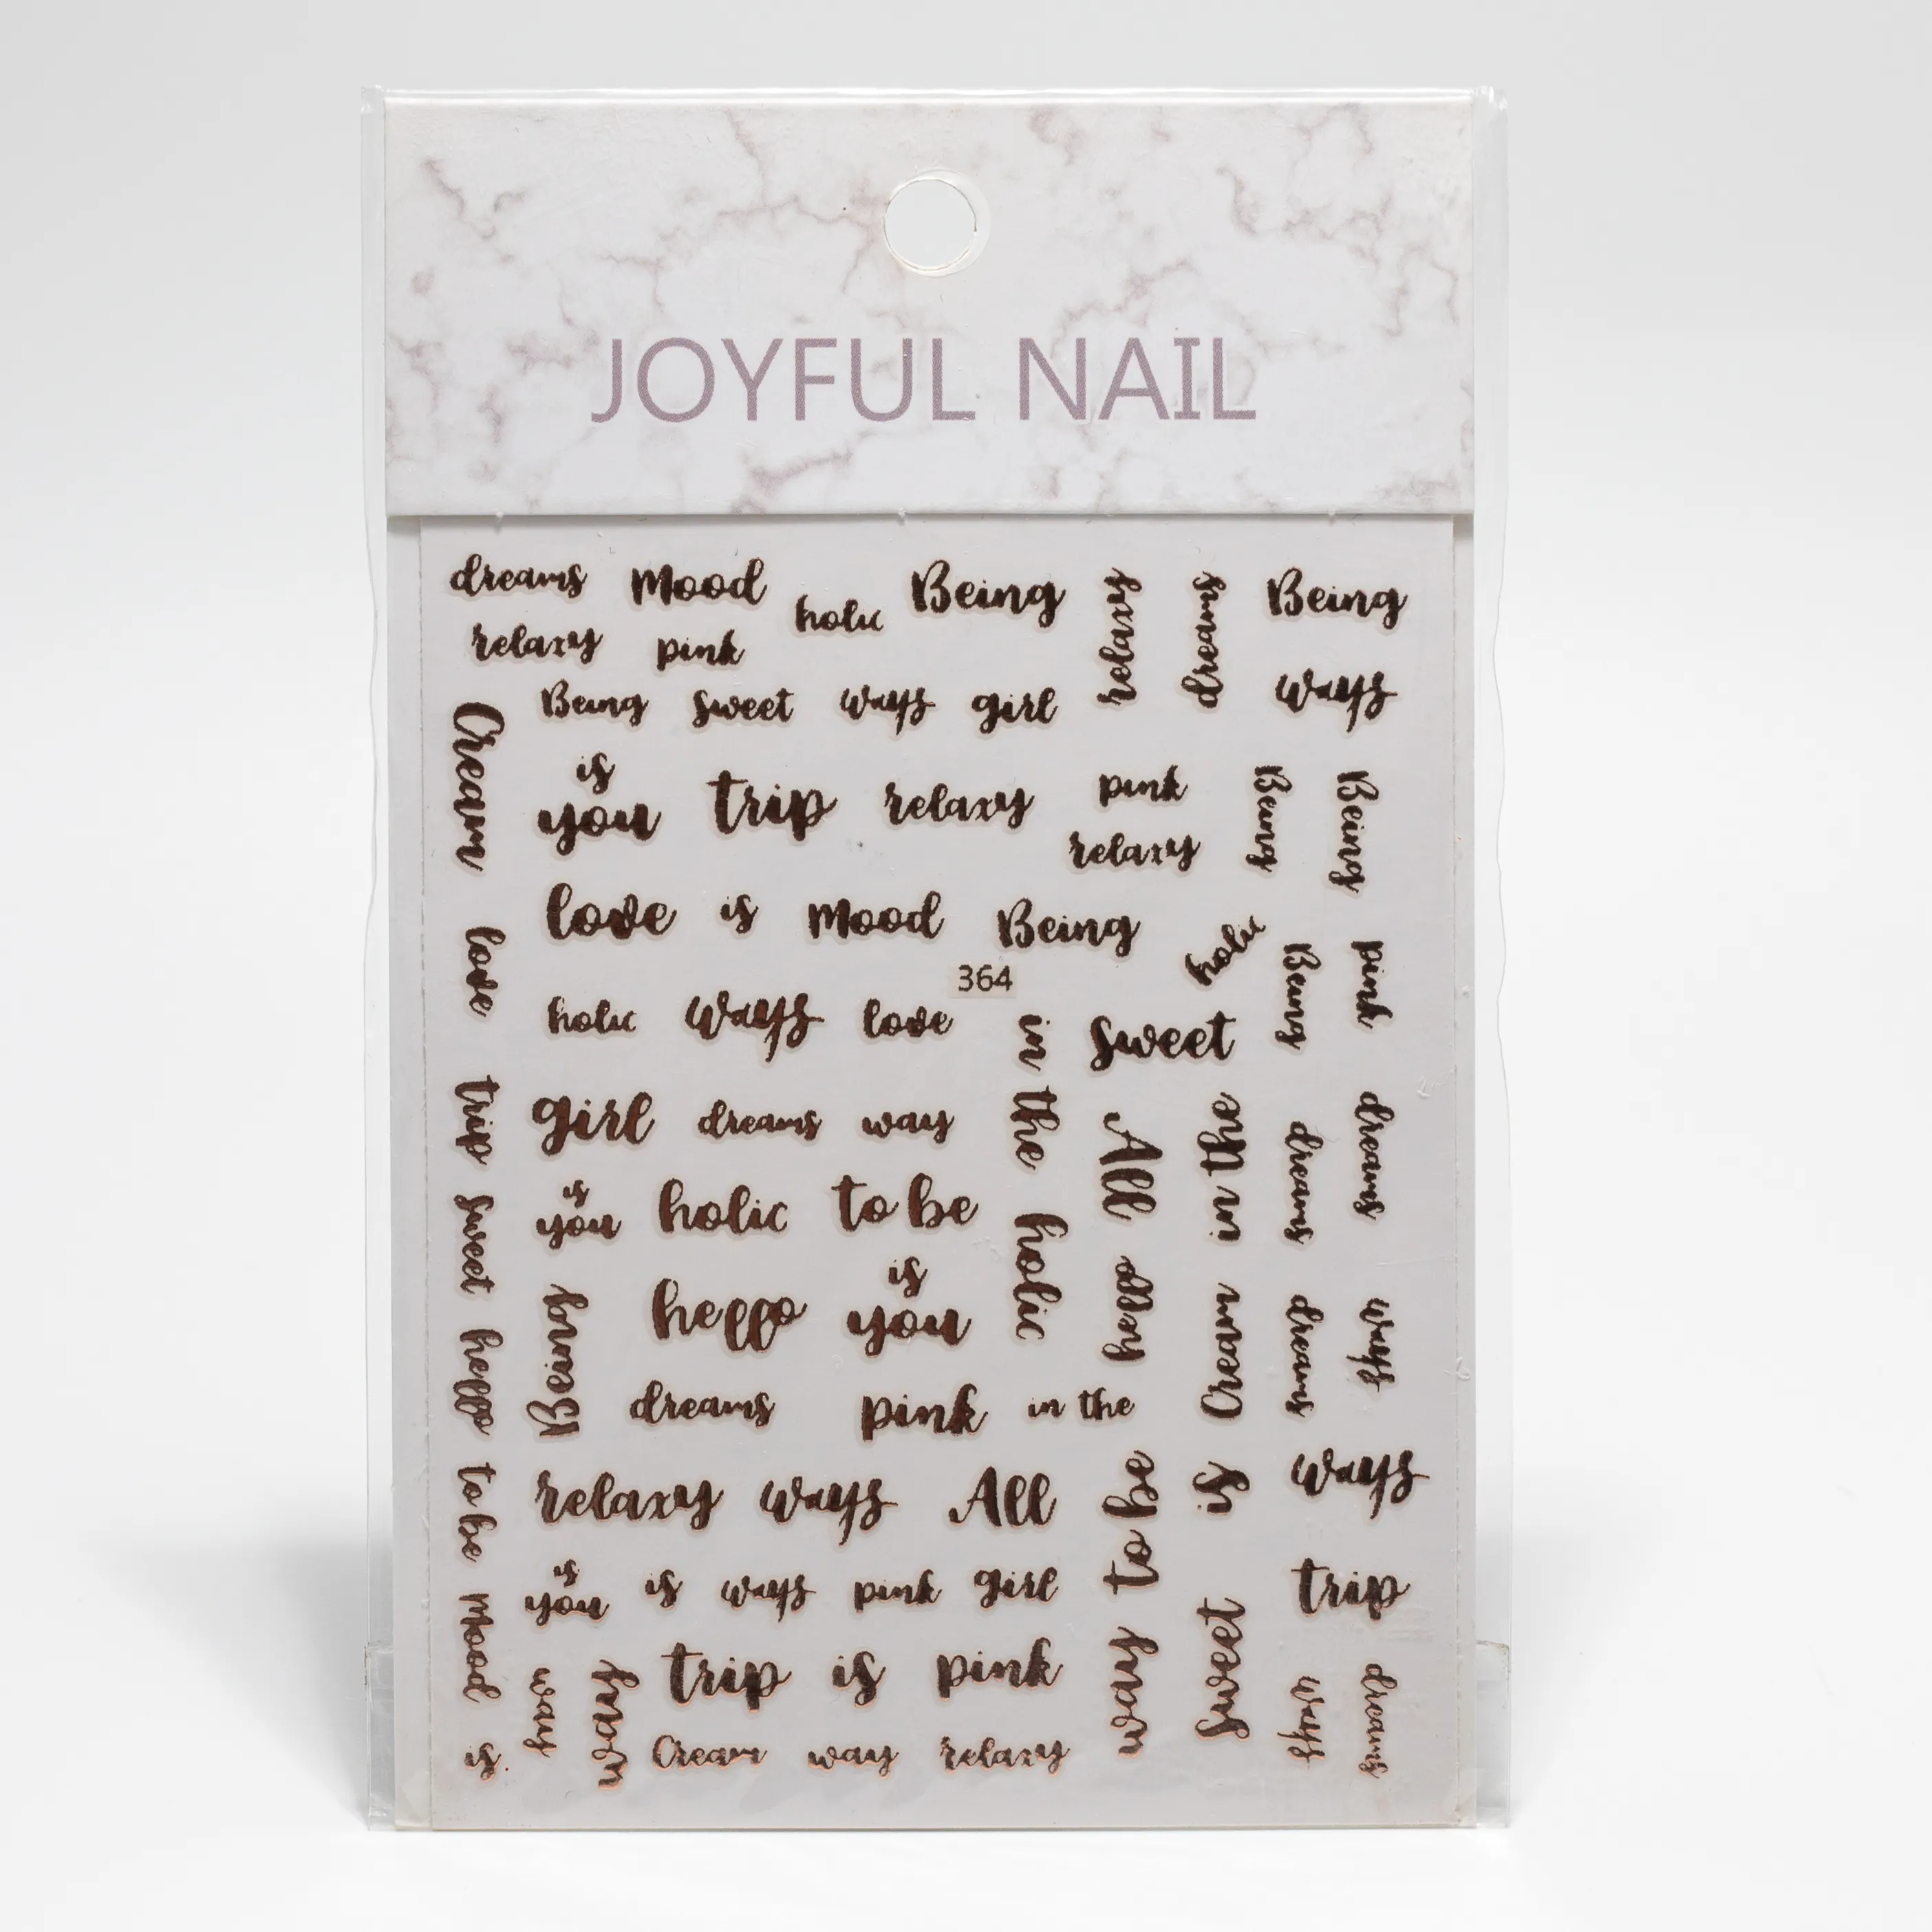 JOYFUL NAIL
dreams Mood holic Being relaxy dreams Being
relaxy pink
Being sweet ways girl ways
Cream
is
you trip relaxy pink Being Being
relaxy
love is Mood Being holic Being pink
love
364
holic ways love in the sweet
trip girl dreams way All in the dreams dreams
is
you holic to be holic
sweet
is
hello you hello Cream dreams ways
hello Being
dreams pink in the
relaxy ways All to be is ways
to be
is
you is ways pink girl trip
Mood way way trip is pink way sweet ways dreams
is Cream way relaxy